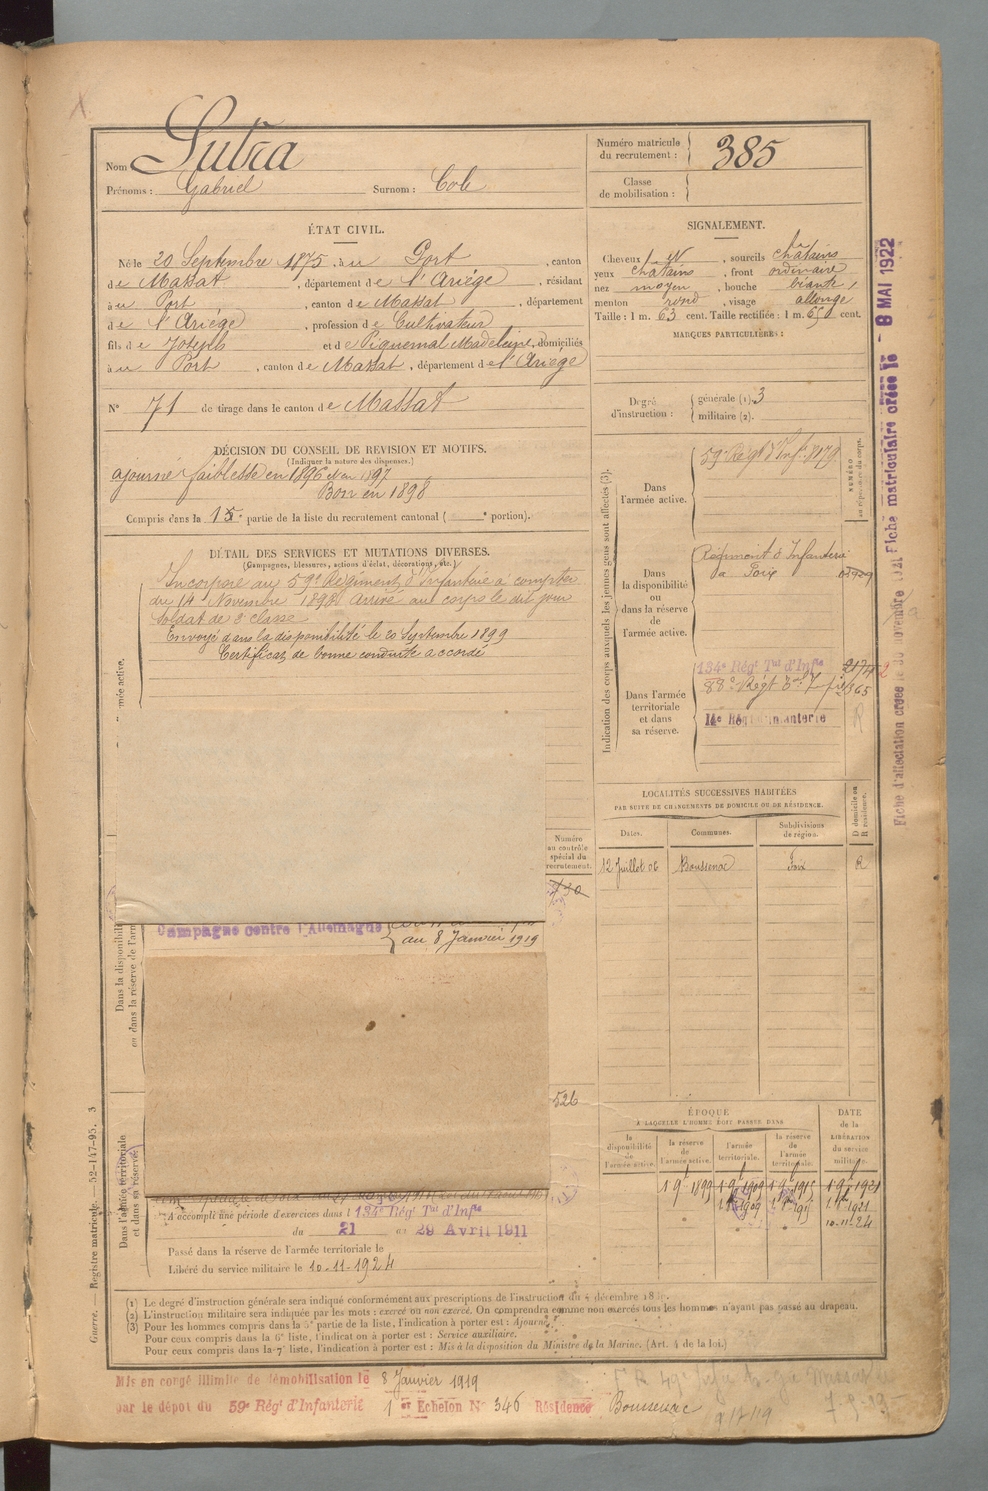 Nom Sutra
Prénoms : Gabriel Surnom : Cole
Numéro matricule du recrutement : 385
Classe de mobilisation :
ÉTAT CIVIL.
Né le 20 Septembre 1875, à u Port, canton
de Massat, département de l'Ariége, résidant
à u Port, canton de Massat, département
de l'Ariége, profession de Cultivateur
fils de Joseph et de Piquemal Madeleine, domiciliés
à u Port, canton de Massat, département de l'Ariege
N° 71 de tirage dans le canton de Massat
SIGNALEMENT.
Cheveux N, sourcils chatains
yeux chatains, front ordinaire
nez moyen, bouche béante,
menton rond, visage allongé
Taille : 1 m. 63 cent. Taille rectifiée : 1 m. 650 cent.
MARQUES PARTICULIÈRES :
Degré d'instruction : générale (1). 3
militaire (2).
DÉCISION DU CONSEIL DE REVISION ET MOTIFS.
(Indiquer la nature des dispenses.)
ajourné faiblesse en 1896 et en 1897
Bon en 1898
Compris dans la partie de la liste du recrutement cantonal ( portion).
DÉTAIL DES SERVICES ET MUTATIONS DIVERSES.
(Campagnes, blessures, actions d'éclat, décorations, etc.)
Incorporé au 59e Régiment d'Infanterie à compter
du 14 Novembre 1898. Arrivé au corps le dit jour
Soldat de 2e classe
Envoyé dans la disponibilité le 20 Septembre 1899
Certificat de bonne conduite accordé
Indication des corps auxquels les jeunes gens sont affectés (3).
Dans l'armée active.
59e Régt d'Inf.
NUMÉRO au répertoire du corps.
Dans la disponibilité ou dans la réserve de l'armée active.
Régiment d'Infanterie
de Foix
Dans l'armée territoriale et dans sa réserve.
134e Régt Tal d'Infie
88e Régt
14e Régt Infanterie
R
LOCALITÉS SUCCESSIVES HABITÉES
PAR SUITE DE CHANGEMENTS DE DOMICILE OU DE RÉSIDENCE.
Dates. Communes. Subdivisions de région. D domicile ou R résidence.
12 Juillet 06 Boussenac Foix R
Numéro au contrôle spécial du recrutement.
Campagne contre l'Allemagne
au 8 Janvier 1919
526
ÉPOQUE
À LAQUELLE L'HOMME DOIT PASSER DANS
la disponibilité de l'armée active. la réserve de l'armée active. l'armée territoriale. la réserve de l'armée territoriale. DATE de la LIBÉRATION du service militaire.
1 9bre 1899
10-11-24
A accompli une période d'exercices dans l 134e Régt Tal d'Infie
du 21 au 29 Avril 1911
Passé dans la réserve de l'armée territoriale le
Libéré du service militaire le 10-11-1924
(1) Le degré d'instruction générale sera indiqué conformément aux prescriptions de l'instruction du 4 décembre
(2) L'instruction militaire sera indiquée par les mots : exercé ou non exercé. On comprendra comme non exercés tous les hommes n'ayant pas passé au drapeau.
(3) Pour les hommes compris dans la 5e partie de la liste, l'indication à porter est : Ajourné.
Pour ceux compris dans la 6e liste, l'indication à porter est : Service auxiliaire.
Pour ceux compris dans la 7e liste, l'indication à porter est : Mis à la disposition du Ministre de la Marine. (Art. 4 de la loi.)
Mis en congé illimité de démobilisation le 8 Janvier 1919
par le dépôt du 59e Régt d'Infanterie 1er Echelon N° 346 Résidence Boussenac
Guerre. — Registre matricule. — 52-147-95. 3
Fiche matriculaire créée le 8 MAI 1922
Fiche d'affectation créée le 30 novembre 1921